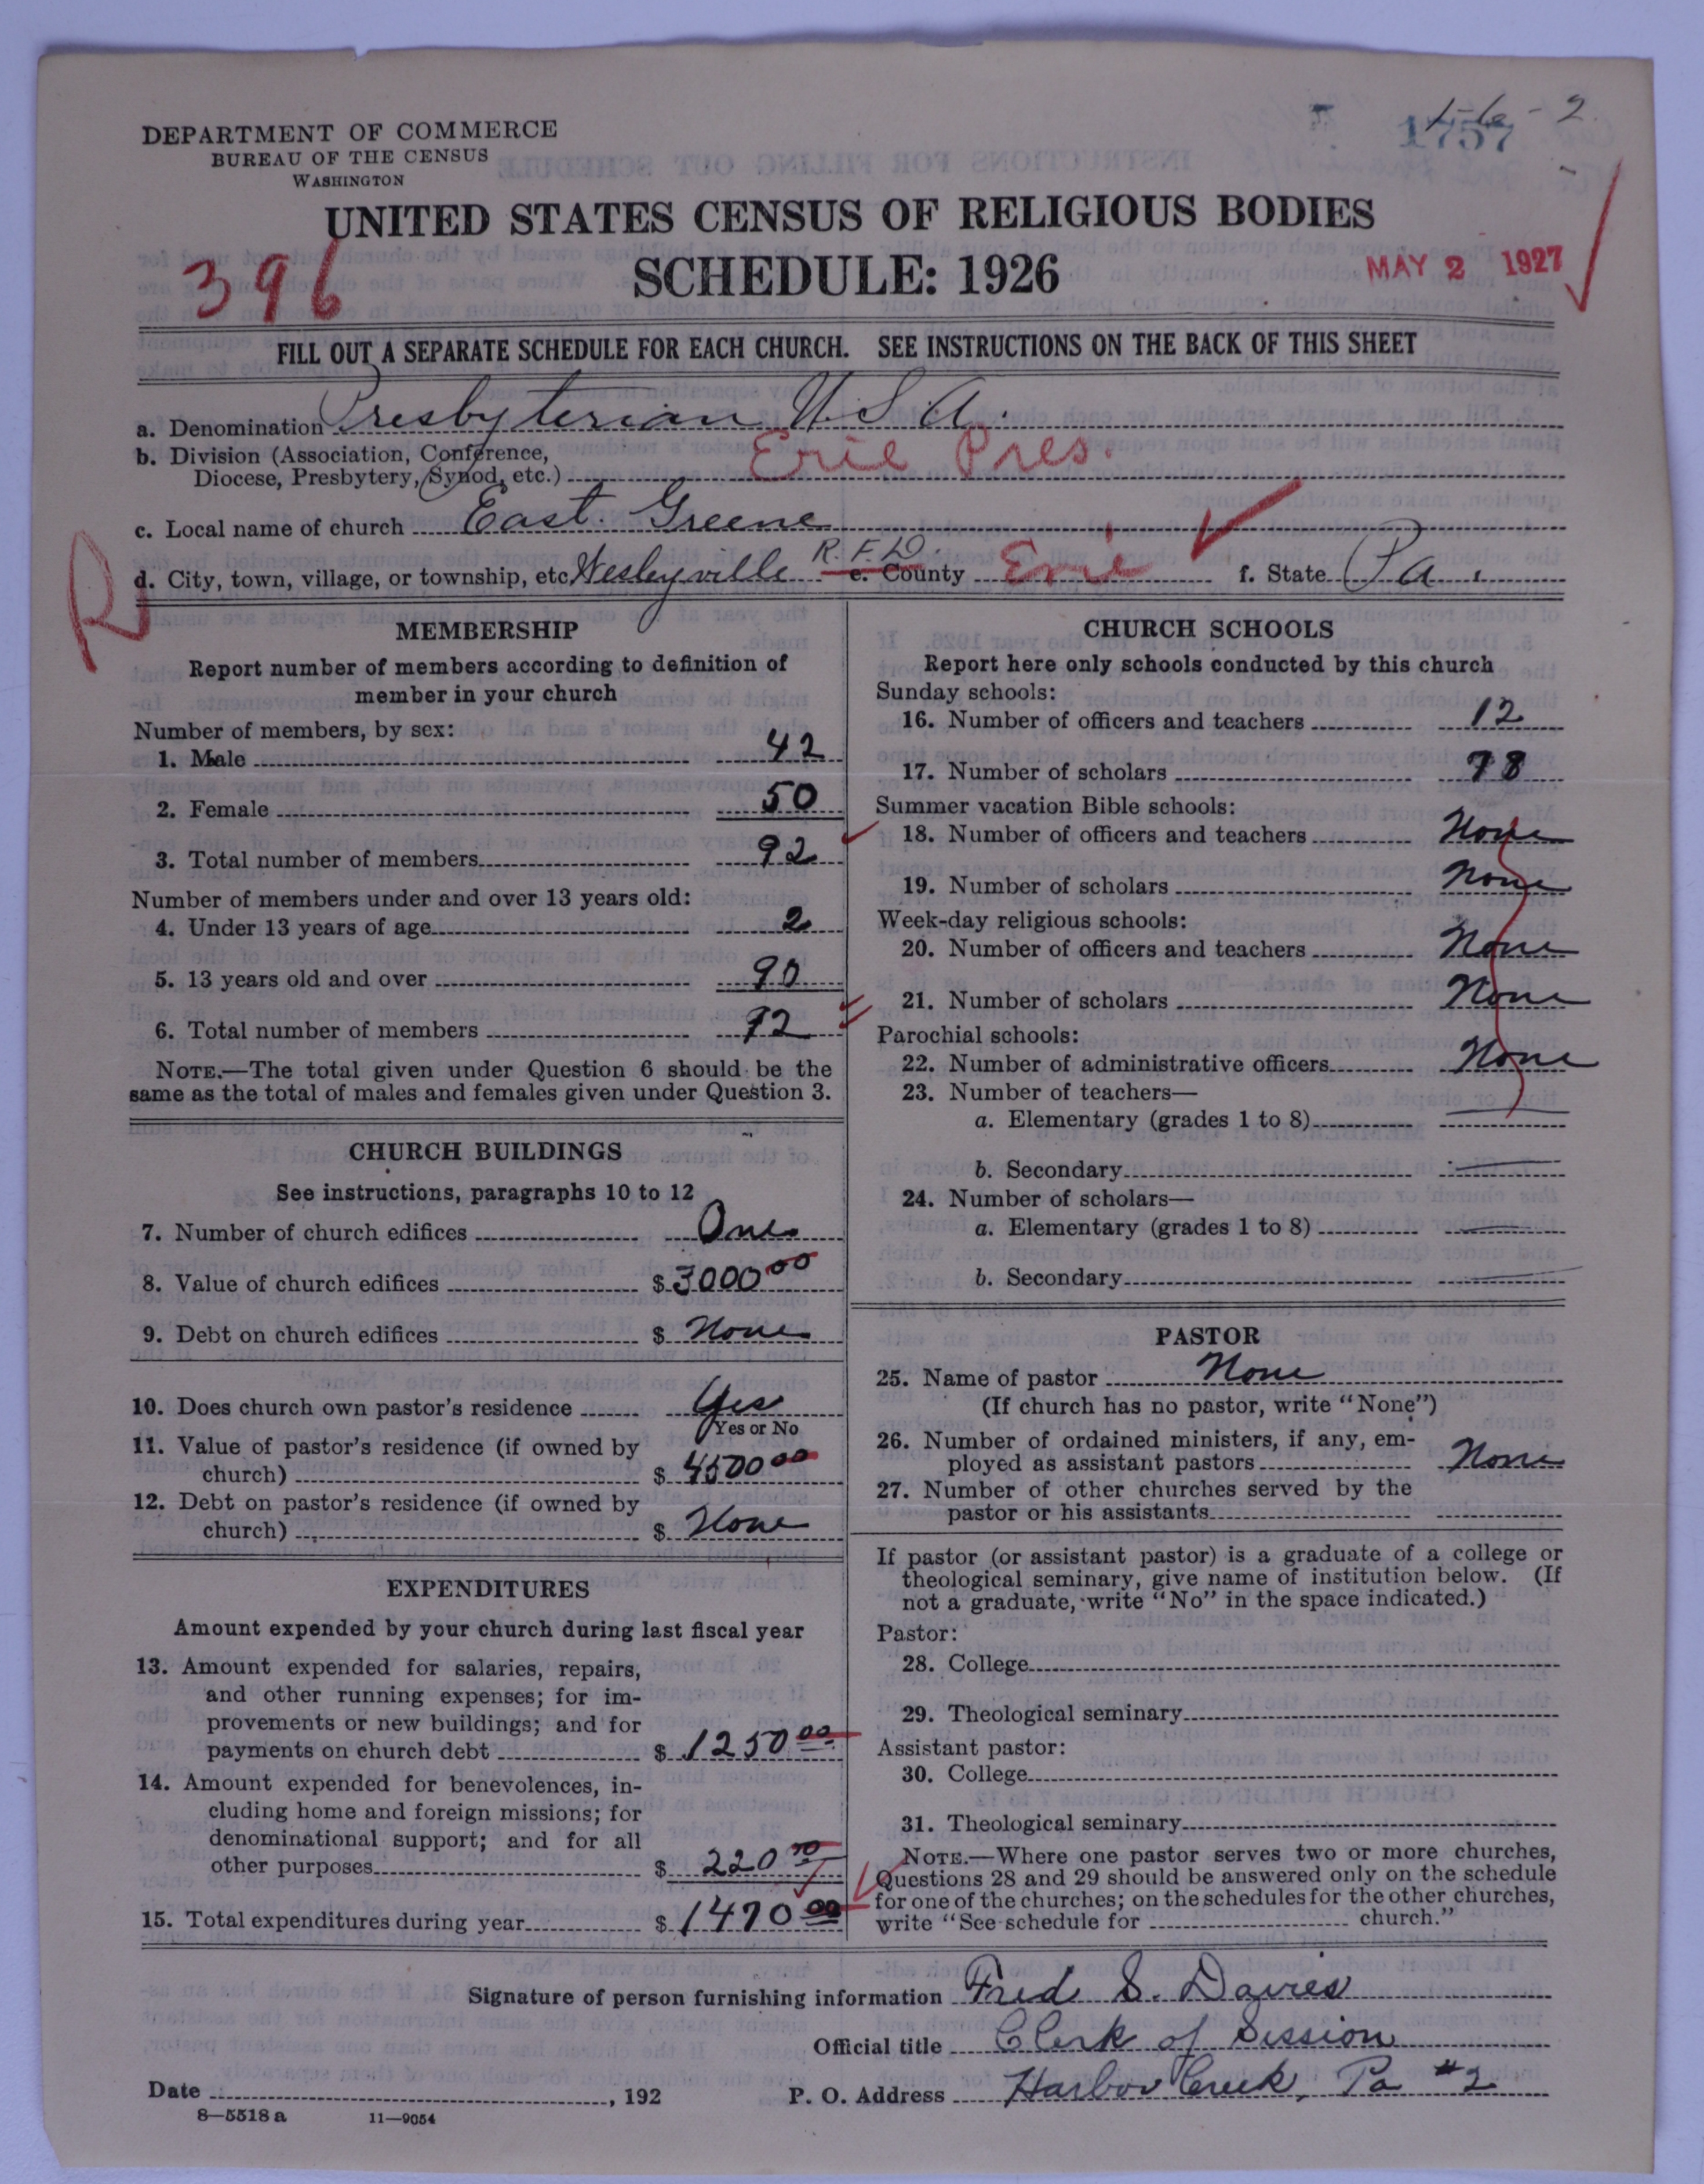 DEPARTMENT OF COMMERCE
BUREAU OF THE CENSUS
WASHINGTON
1757
UNITED STATES CENSUS OF RELIGIOUS BODIES
396
SCHEDULE: 1926
MAY 2 1927
FILL OUT A SEPARATE SCHEDULE FOR EACH CHURCH. SEE INSTRUCTIONS ON THE BACK OF THIS SHEET
a. Denomination Presbyterian U.S.A.
b. Division (Association, Conference,
Diocese, Presbytery, Synod, etc.) Erie Pres.
c. Local name of church East Greene
R
d. City, town, village, or township, etc. Wesleyville R.F.D. e. County Erie f. State Pa.
MEMBERSHIP
Report number of members according to definition of
member in your church
Number of members, by sex:
1. Male 42
2. Female 50
3. Total number of members 92
Number of members under and over 13 years old:
4. Under 13 years of age 2
5. 13 years old and over 90
6. Total number of members 92
NOTE.—The total given under Question 6 should be the
same as the total of males and females given under Question 3.
CHURCH BUILDINGS
See instructions, paragraphs 10 to 12
7. Number of church edifices One
8. Value of church edifices $ 3000 00
9. Debt on church edifices $ None
10. Does church own pastor's residence Yes
Yes or No
11. Value of pastor's residence (if owned by
church) $ 4500 00
12. Debt on pastor's residence (if owned by
church) $ None
EXPENDITURES
Amount expended by your church during last fiscal year
13. Amount expended for salaries, repairs,
and other running expenses; for im-
provements or new buildings; and for
payments on church debt $ 1250 00
14. Amount expended for benevolences, in-
cluding home and foreign missions; for
denominational support; and for all
other purposes $ 220
15. Total expenditures during year $ 1470 00
CHURCH SCHOOLS
Report here only schools conducted by this church
Sunday schools:
16. Number of officers and teachers 12
17. Number of scholars 78
Summer vacation Bible schools:
18. Number of officers and teachers None
19. Number of scholars None
Week-day religious schools:
20. Number of officers and teachers None
21. Number of scholars None
Parochial schools:
22. Number of administrative officers None
23. Number of teachers—
a. Elementary (grades 1 to 8)
b. Secondary
24. Number of scholars—
a. Elementary (grades 1 to 8)
b. Secondary
PASTOR
25. Name of pastor None
(If church has no pastor, write "None")
26. Number of ordained ministers, if any, em-
ployed as assistant pastors None
27. Number of other churches served by the
pastor or his assistants
If pastor (or assistant pastor) is a graduate of a college or
theological seminary, give name of institution below. (If
not a graduate, write "No" in the space indicated.)
Pastor:
28. College
29. Theological seminary
Assistant pastor:
30. College
31. Theological seminary
NOTE.—Where one pastor serves two or more churches,
Questions 28 and 29 should be answered only on the schedule
for one of the churches; on the schedules for the other churches,
write "See schedule for church."
Signature of person furnishing information Fred S. Davies
Official title Clerk of Session
Date , 192 P. O. Address Harbor Creek, Pa #2
8—5518 a 11—9054